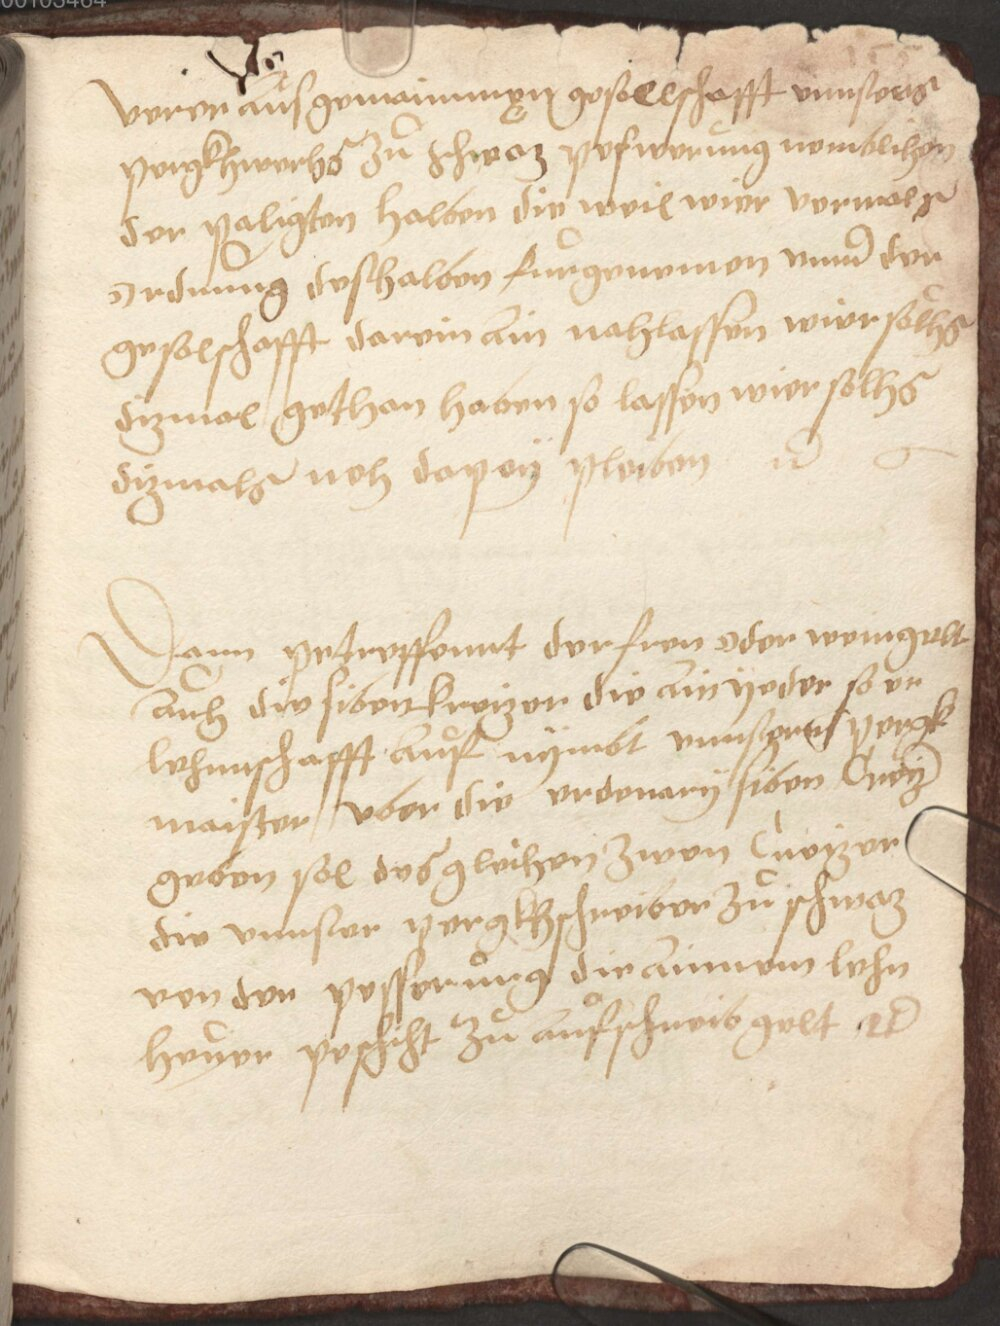 00103464
verer aus gemainner gesellschafft unnsers
pergkhwerchs zu Schwaz peswerung nemblichen
der paligten halben die weil wier vormals
Ordnung deshalben furgenomen unnd der
geselschafft darein ain nachlassen wier solhs
dizmal gethan haben so lassen wier solhs
dizmals noch dapey pleiben
Dann petreffennt der fron oder wenngelt
auch die siben kreizer die ain yeder so er
lehennschafft auf nymbt unnserm pergk
maister uber die ordenary siben Creiz
geben sol des gleichen zwen Creizer
die unnser pergkhschreiber zu schwaz
von der pesserung die ainnem lehn
heyer peschicht zu aufschreib gelt